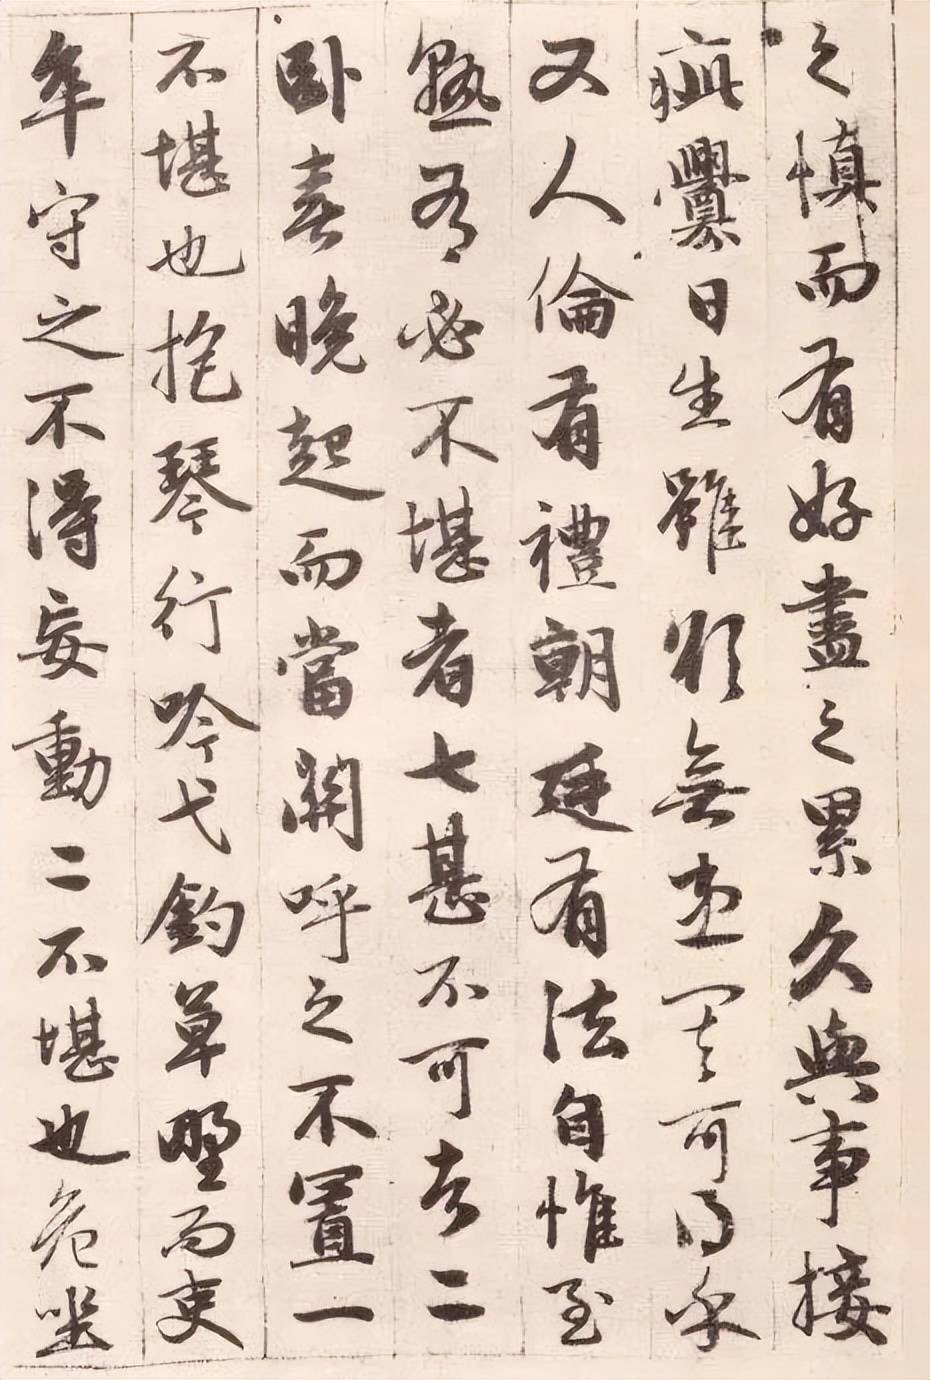 之慎而有好盡之累久與事接
疵釁日生雖欲無患其可得乎
又人倫有禮朝廷有法自惟至
熟有必不堪者七甚不可者二
臥喜晚起而當關呼之不置一
不堪也抱琴行吟弋釣草野而吏
卒守之不得妄動二不堪也危坐